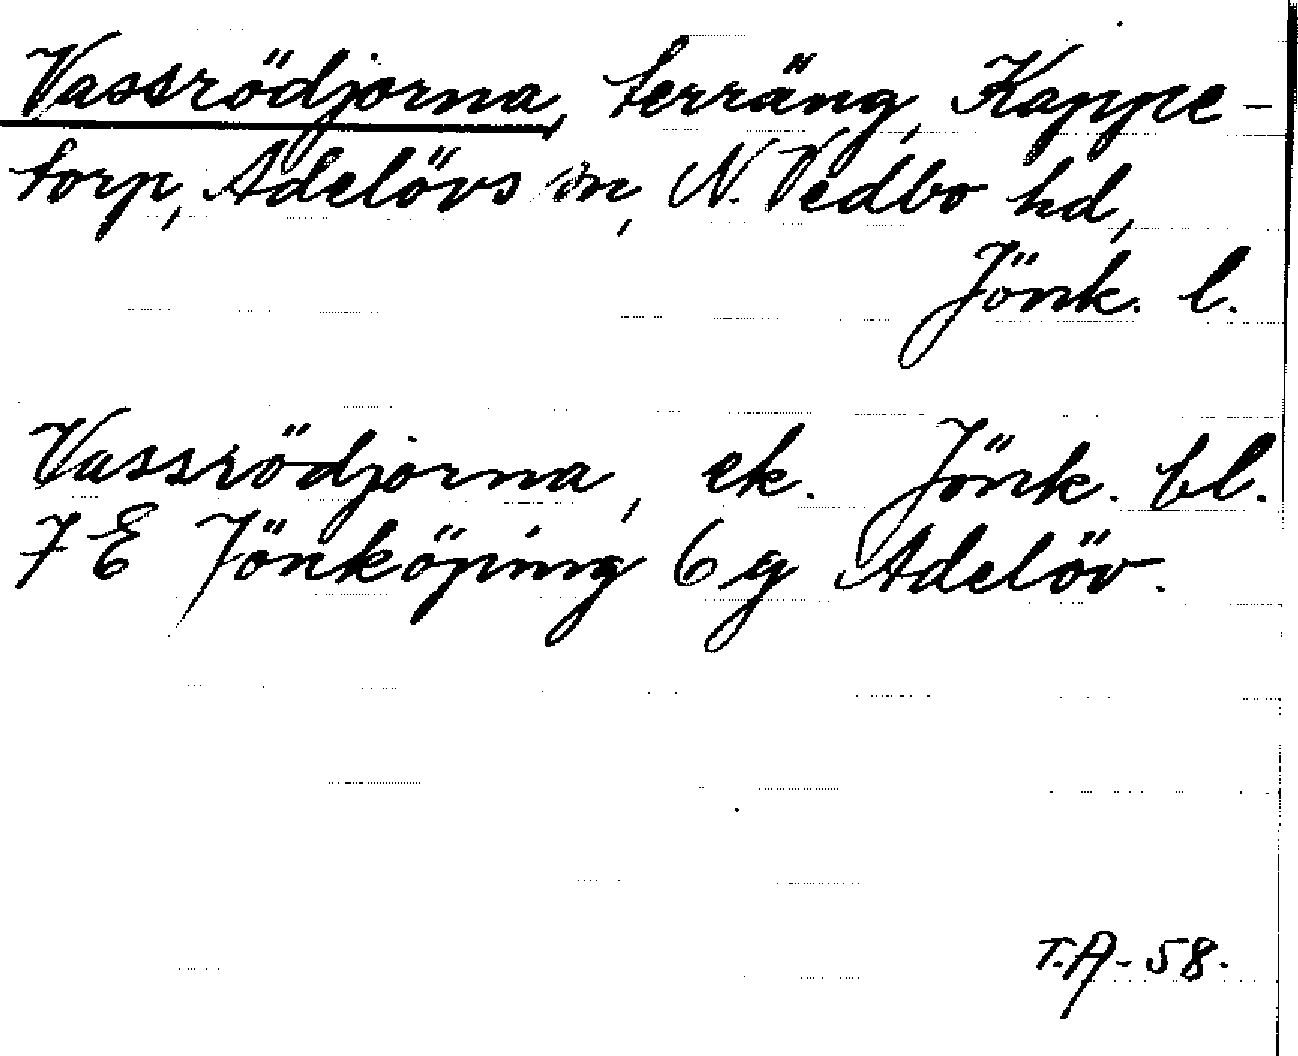 Vassrödjorna, terräng, Kappe-
torp, Adelövs sn, N. Vedbo hd,
Jönk. l.
Vassrödjorna, ek. Jönk. bl.
7E Jönköping 6g Adelöv.
T.A-58.